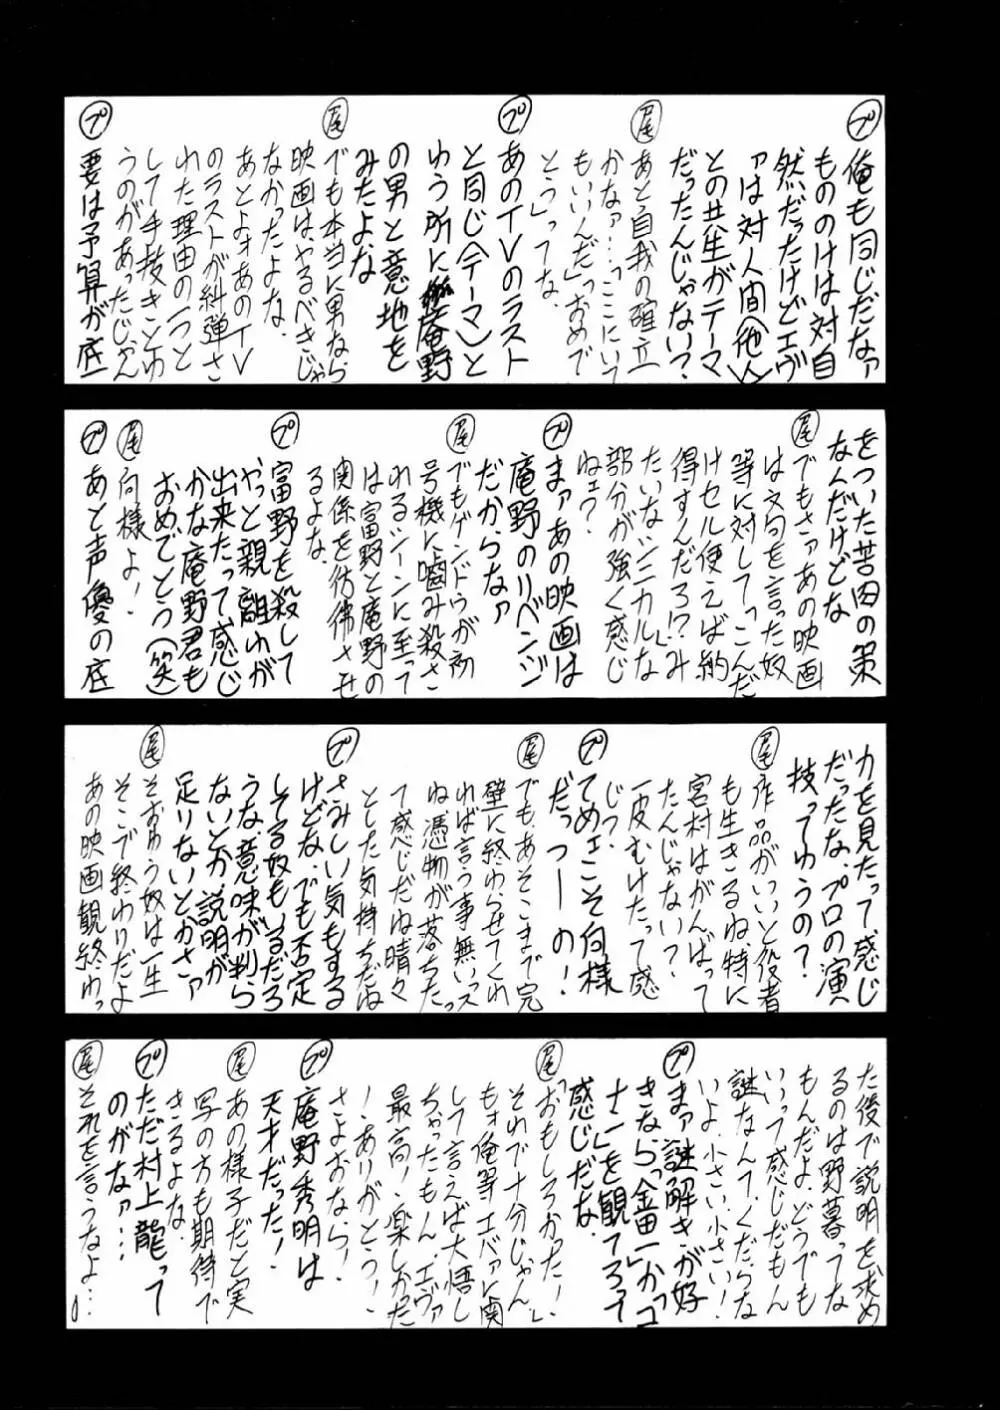 プ 俺も同じだなァ
もののけは対自
然だったけどエヴ
ァは対人間(他人)
との共生がテーマ
だったんじゃない?
尾 あと自我の確立
かなァ…「ここにいて
もいいんだ」「おめで
とう」ってな、
プ あのTVのラスト
と同じ〈テーマ〉と
ゆう所に庵野
の男と意地を
みたよな
尾 でも本当に男なら
映画は、やるべきじゃ
なかったよな、
あとよォあのTV
のラストが糾弾さ
れた理由の一つと
して手抜きとゆ
うのがあったじゃん
プ 要は予算が底
をついた苦肉の策
なんだけどな
尾 でもさァあの映画
は文句を言った奴
等に対して「こんだ
けセル使えば納
得すんだろ!?」み
たいな〝シニカル〟な
部分が強く感じ
ねェ?
プ まァあの映画は
庵野のリベンジ
だからなァ
尾 でもゲンドウが初
号機に噛み殺さ
れるシーンに至って
は富野と庵野の
関係を彷彿させ
るよな、
プ 富野を殺して
やっと親離れが
出来たって感じ
かな庵野君も
おめでとう(笑)
尾 何様よ!
プ あと声優の底
力を見たって感じ
だったな、プロの演
技ってゆうの?
尾 作品がいいと役者
も生きるね、特に
宮村はがんばって
たんじゃない?
一皮むけたって感
じっ、
プ てめェこそ何様
だっつーの!
尾 でも、あそこまで完
璧に終わらせてくれ
れば言う事無いっス
ね憑物が落ちたっ
て感じだね晴々
とした気持ちだね
プ さみしい気もする
けどな、でも否定
してる奴もいるだろ
うな、意味が判ら
ないとか、説明が
足りないとかさァ
尾 そおゆう奴は一生
そこで終わりだよ
あの映画観終わっ
た後で説明を求め
るのは野暮ってな
もんだよ、どうでも
いいって感じだもん
謎なんて、くだらな
いよ、小さい、小さい!
プ まァ謎解きが好
きなら「金田一」か「コ
ナン」を観てろって
感じだな、
尾 「おもしろかった!」
それで十分じゃん、
もォ俺等エバァに関
して言えば大悟し
ちゃったもん、エヴァ
最高!、楽しかた
!、ありがとう!、
さよおなら!
プ 庵野秀明は
天才だった!
尾 あの様子だと実
写の方も期待で
きるよな、
プ ただ村上龍って
のがなァ…
尾 それを言うなよ…♪